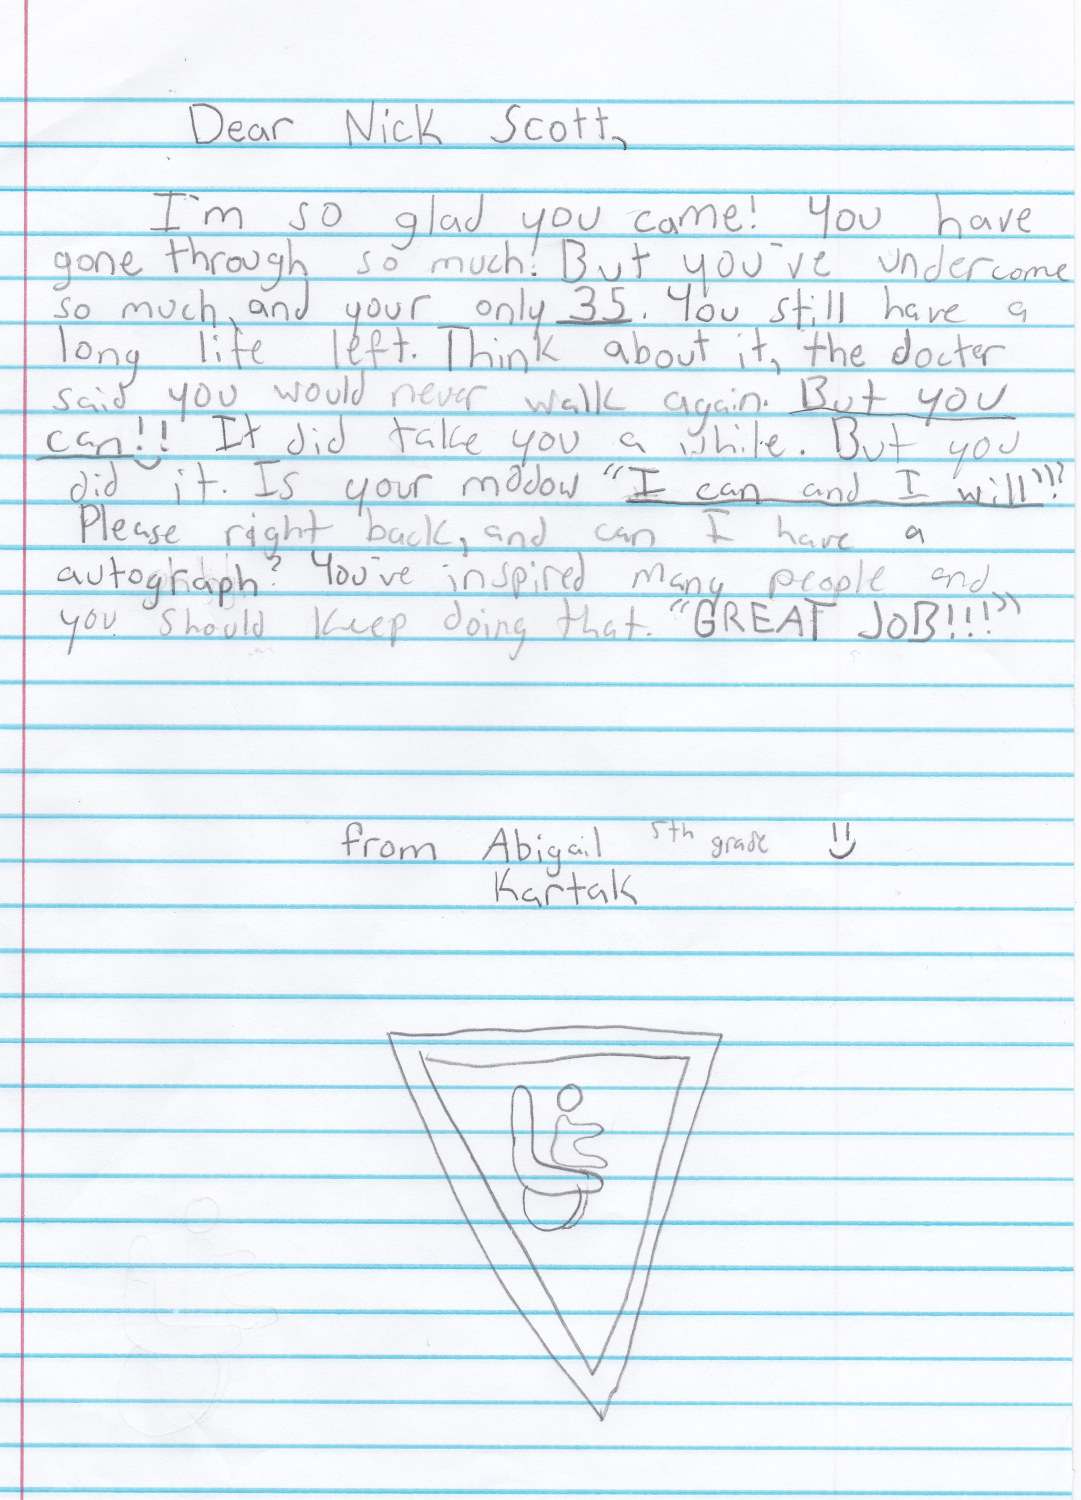 Dear Nick Scott,
I'm so glad you came! You have
gone through so much! But you've undercome
so much, and your only 35. You still have a
long life left. Think about it, the docter
said you would never walk again. But you
can!! It did take you a while. But you
did it. Is your modow "I can and I will"?
Please right back, and can I have a
autograph? You've inspired many people and
you should keep doing that. "GREAT JOB!!!"
from Abigail 5th grade
Kartak